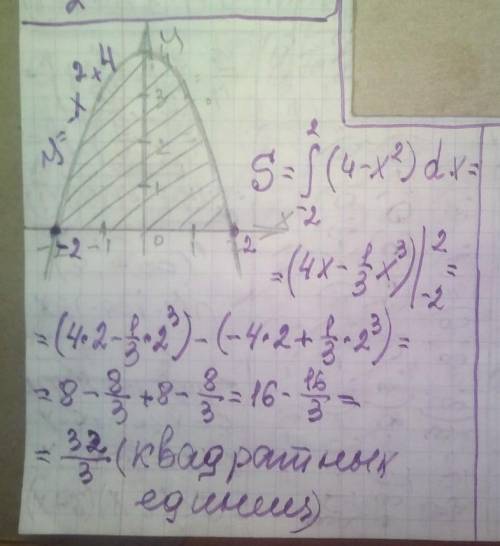 2
y
y = -x² + 4
4
3
2
1
-2 -1 0 1 2 x
S = ∫₋₂² (4 - x²) dx =
= (4x - 1/3 x³) |₋₂² =
= (4·2 - 1/3·2³) - (-4·2 + 1/3·2³) =
= 8 - 8/3 + 8 - 8/3 = 16 - 16/3 =
= 32/3 (квадратных
единиц)